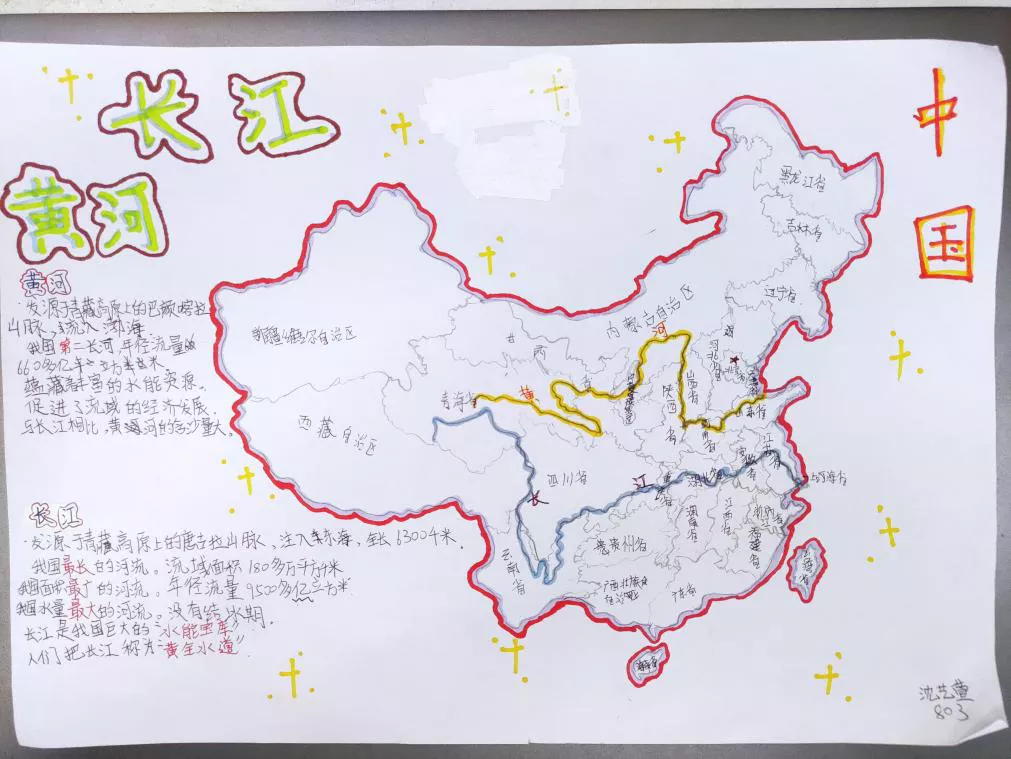 长江
黄河
中国
黄河
发源于青藏高原上的巴颜喀拉
山脉,流入渤海
我国第二长河,年径流量
660多亿立方米
蕴藏着丰富的水能资源。
促进了流域的经济发展
与长江相比,黄河的含沙量大。
长江
发源于青藏高原上的唐古拉山脉,注入东海,全长6300千米.
我国最长的河流。流域面积180多万平方千米
我国面积最广的河流。年径流量9500多亿立方米
我国水量最大的河流。没有结冰期.
长江是我国巨大的"水能宝库".
人们把长江称为"黄金水道".
黑龙江省
吉林省
辽宁省
内蒙古自治区
新疆维吾尔自治区
甘肃
河
河北省
北京
山西省
青海省
黄
陕西省
山东省
西藏自治区
四川省
长
江
湖北省
安徽省
江苏省
上海
湖南省
江西省
浙江
福建省
贵州省
云南省
广西壮族自治区
广东省
台湾省
海南省
沈艺萱
803